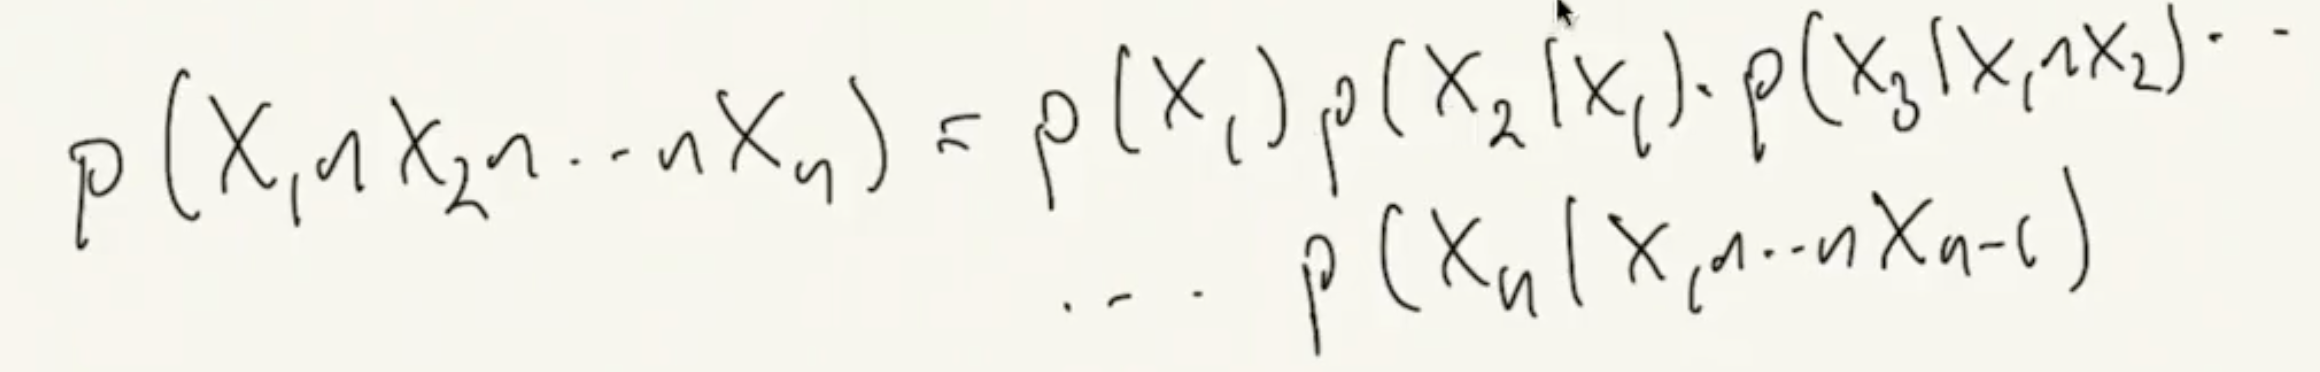 p(X₁∩X₂∩...∩Xₙ) = p(X₁)p(X₂|X₁)·p(X₃|X₁∩X₂)...
... p(Xₙ|X₁∩...∩Xₙ₋₁)